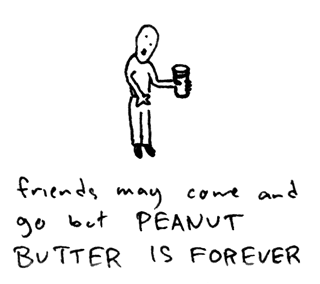 friends may come and
go but PEANUT
BUTTER IS FOREVER